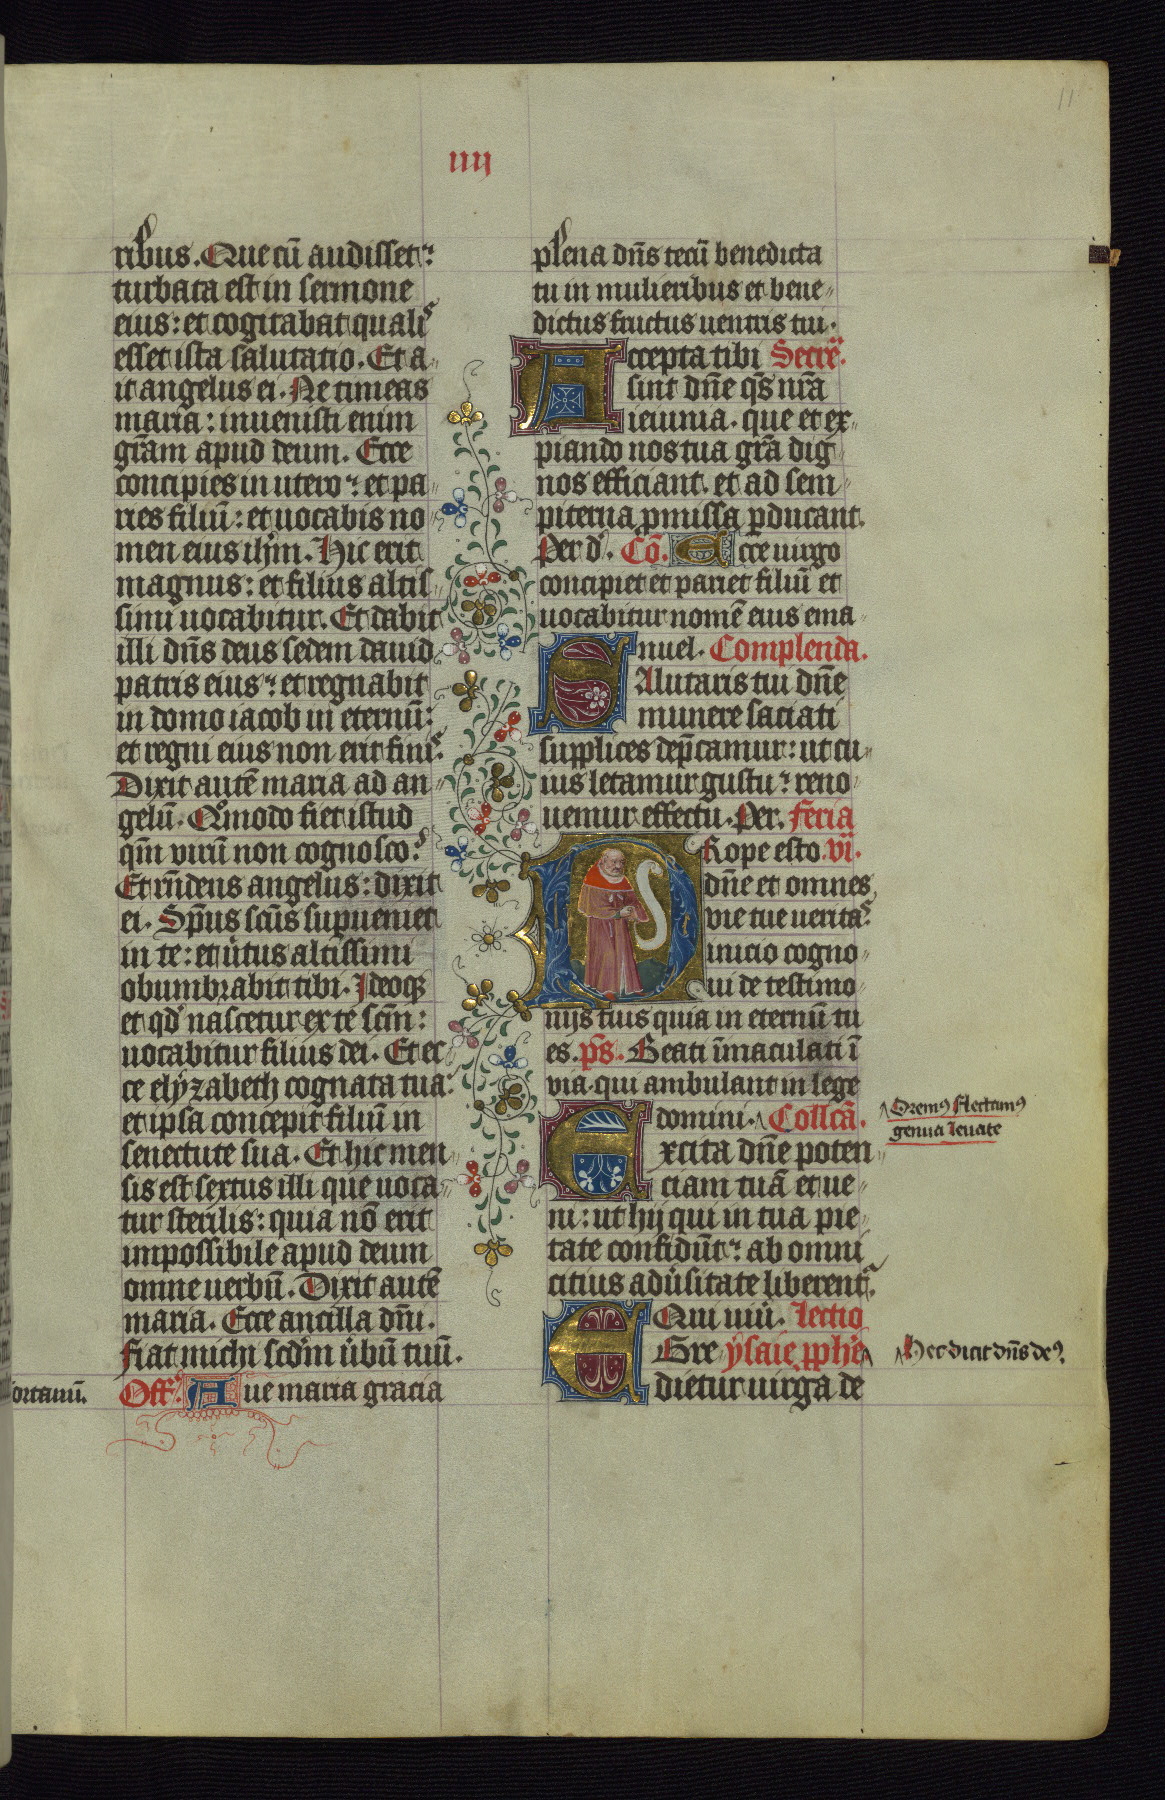 11
iiij
ribus. Que cū audisset:
turbata est in sermone
eius: et cogitabat qualis
esset ista salutatio. Et a-
it angelus ei. Ne timeas
maria: inuenisti enim
grām apud deum. Ecce
concipies in utero: et pa-
ries filiū: et uocabis no-
men eius ihm̄. Hic erit
magnus: et filius altis-
simi uocabitur. Et dabit
illi dn̄s deus sedem dauid
patris eius: et regnabit
in domo iacob in eternū:
et regni eius non erit finis.
Dixit autē maria ad an-
gelū. Qomodo fiet istud
qm̄ virū non cognosco?
Et rn̄dens angelus: dixit
ei. Sp̄us scūs supueniet
in te: et u̇tus altissimi
obumbrabit tibi. Ideoqz
et qd̓ nascetur ex te scm̄:
uocabitur filius dei. Et ec-
ce elyzabeth cognata tua:
et ipsa concepit filiū in
senectute sua. Et hic men-
sis est sextus illi que uoca-
tur sterilis: quia nō erit
impossibile apud deum
omne uerbū. Dixit autē
maria. Ecce ancilla dn̄i.
fiat michi scdm̄ u̇bū tuū.
Off. Aue maria gracia
plena dn̄s tecū benedicta
tu in mulieribus et bene-
dictus fructus uentris tui.
Accepta tibi Secre.
sint dn̄e qs̄ nrā
ieiunia. que et ex-
piando nos tua grā dig-
nos efficiant. et ad sem-
piterna pmissa pducant.
Per d. Cō. Ecce uirgo
concipiet et pariet filiū et
uocabitur nomē eius ema-
nuel. Complenda.
SAlutaris tui dn̄e
munere saciati
supplices dep̄camur: ut cu-
ius letamur gustu: reno-
uemur effectu. Per. Feria
PRope esto .vi.
dn̄e et omnes
vie tue veritas
inicio cogno-
ui de testimo-
nijs tuis quia in eternū tu
es. ps̄. Beati īmaculati ī
via. qui ambulant in lege
domini. Collcā.
Excita dn̄e poten-
ciam tuā et ue-
ni: ut hij qui in tua pie-
tate confidūt: ab omni
citius adu̇sitate liberentr.
Qui uiu̇. lectio
EGre ysaie pphe
dietur uirga de
Oremus flectamus
genua leuate
Hec dicit dn̄s deus.
ortauū.